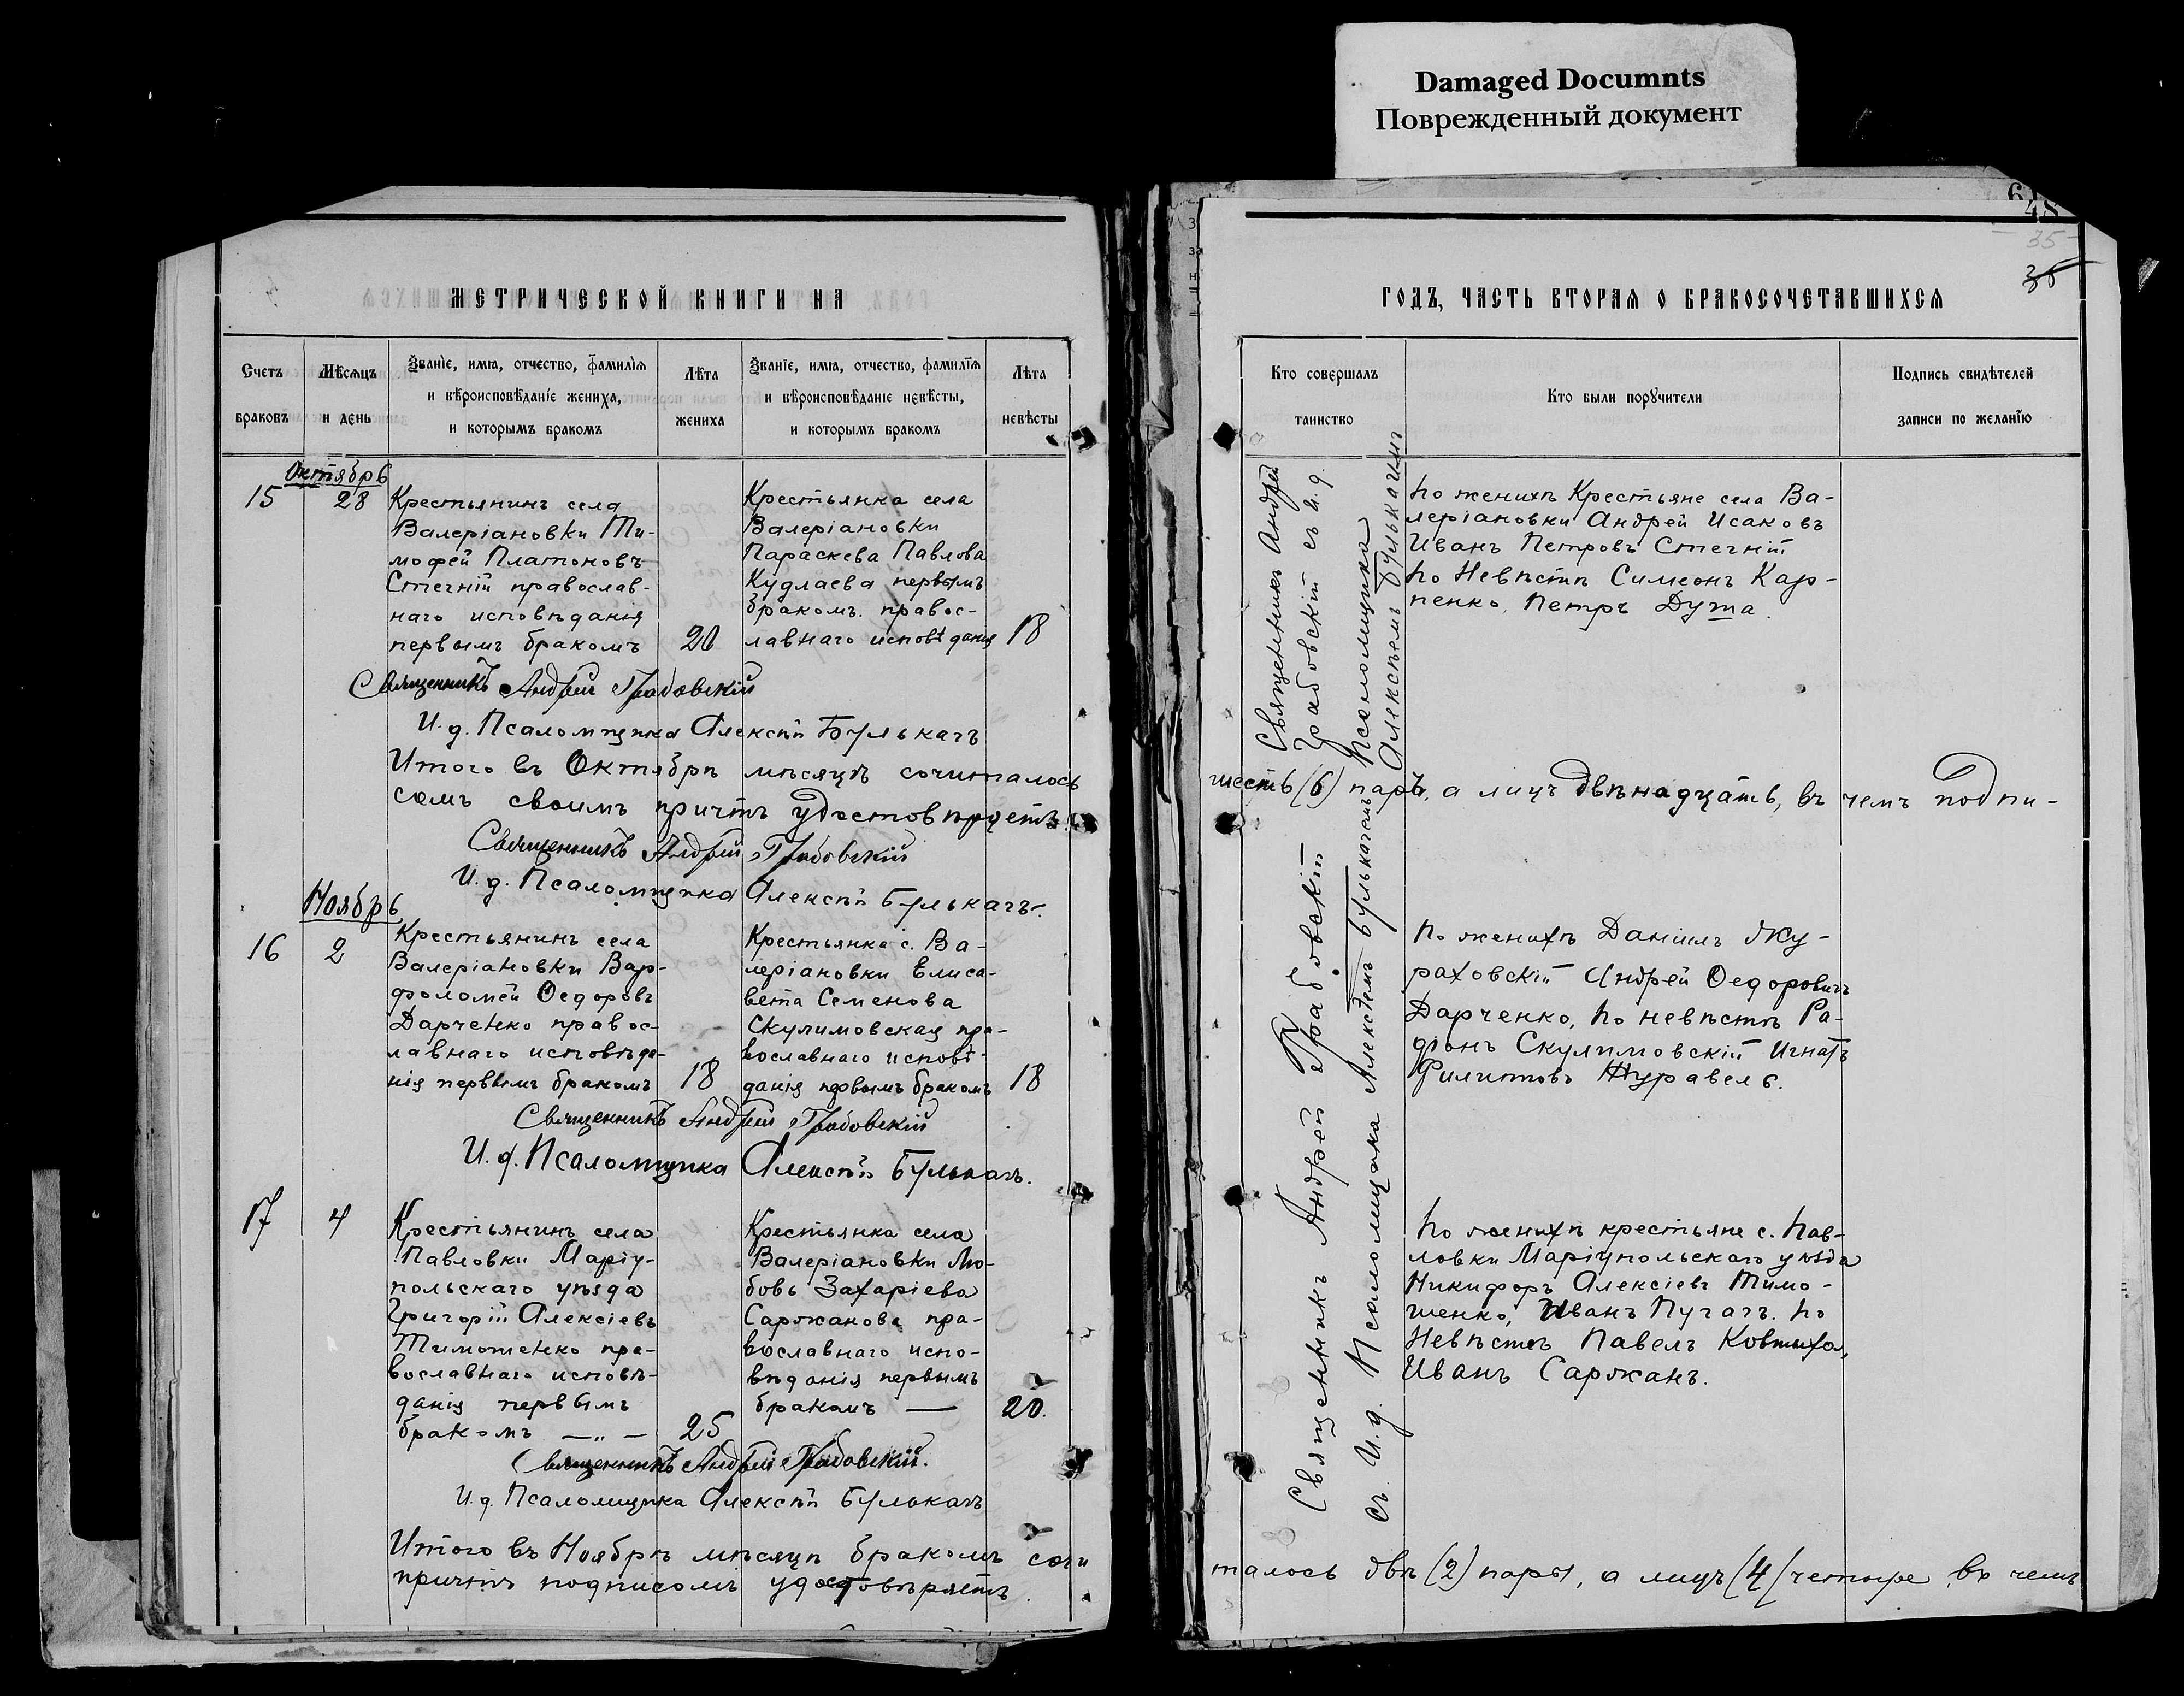 Damaged Documnts
Поврежденный документ
48
35
МЕТРИЧЕСКОЙ КНИГИ НА
ГОДЪ, ЧАСТЬ ВТОРАЯ О БРАКОСОЧЕТАВШИХСЯ
Счетъ браковъ
Мѣсяцъ и день
Званіе, имя, отчество, фамилія
и вѣроисповѣданіе жениха,
и которымъ бракомъ
Лѣта жениха
Званіе, имя, отчество, фамилія
и вѣроисповѣданіе невѣсты,
и которымъ бракомъ
Лѣта невѣсты
Кто совершалъ таинство
Кто были поручители
Подпись свидѣтелей
записи по желанію
Октябрь
15
28
Крестьянинъ села
Валеріановки Ти-
мофей Платоновъ
Стегній православ-
наго исповѣданія
первымъ бракомъ
20
Крестьянка села
Валеріановки
Параскева Павлова
Кудлаева первымъ
бракомъ. правос-
лавнаго исповѣданія
18
Священникъ Андрей
Грабовскій съ и. д.
Псаломщика
Алексѣемъ Булькачимъ
По женихѣ Крестьяне села Ва-
леріановки Андрей Исаковъ
Иванъ Петровъ Стегній
По Невѣстѣ Симеонъ Кар-
пенко, Петръ Дума.
Священникъ Андрей Грабовскій
И. д. Псаломщика Алексѣй Булькачъ
Итого въ Октябрѣ мѣсяцѣ сочиталось
шесть (6) паръ, а лицъ двѣнадцать, въ чемъ подпи-
сомъ своимъ причтъ удостовѣряетъ.
Священникъ Андрей Грабовскій
И. д. Псаломщика Алексѣй Булькачъ.
Ноябрь
16
2
Крестьянинъ села
Валеріановки Вар-
фоломей Ѳедоровъ
Дарченко правос-
лавнаго исповѣда-
нія первымъ бракомъ
18
Крестьянка с. Ва-
леріановки Елиса-
вета Семенова
Скулимовская пра-
вославнаго исповѣ-
данія первымъ бракомъ
18
Священникъ Андрей Грабовскій
съ И. д. Псаломщика Алексѣемъ Булькачемъ
По женихѣ Даніилъ Жу-
раховскій Андрей Ѳедоровичъ
Дарченко, По невѣстѣ Ра-
фонъ Скулимовскій Игнатъ
Филиповъ Журавель.
Священникъ Андрей Грабовскій
И. д. Псаломщика Алексѣй Булькачъ.
17
4
Крестьянинъ села
Павловки Маріу-
польскаго уѣзда
Григорій Алексіевъ
Тимошенко пра-
вославнаго исповѣ-
данія первымъ
бракомъ — „ —
25
Крестьянка села
Валеріановки Лю-
бовь Захаріева
Саржанова пра-
вославнаго испо-
вѣданія первымъ
бракомъ —
20.
По женихѣ крестьяне с. Пав-
ловки Маріупольскаго уѣзда
Никифоръ Алексіевъ Тимо-
шенко, Иванъ Пугачъ. По
Невѣстѣ Павелъ Ковтыха,
Иванъ Саржанъ.
Священникъ Андрей Грабовскій.
И. д. Псаломщика Алексѣй Булькачъ
Итого въ Ноябрѣ мѣсяцѣ бракомъ сочи
талось двѣ (2) пары, а лицъ (4) четыре, въ чемъ
причтъ подписомъ удостовѣряетъ.